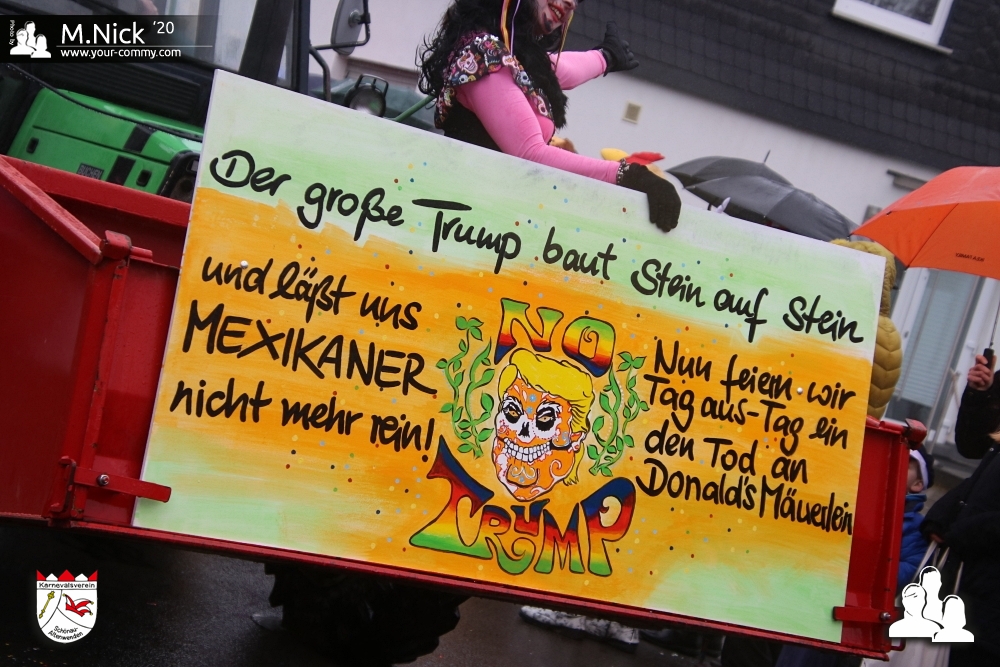 Photo by
M.Nick '20
www.your-commy.com
Der große Trump baut Stein auf Stein
und läßt uns
MEXIKANER
nicht mehr rein!
NO
TRUMP
Nun feiern wir
Tag aus-Tag ein
den Tod an
Donald's Mäuerlein
Karnevalsverein
Schönau-
Altenwenden